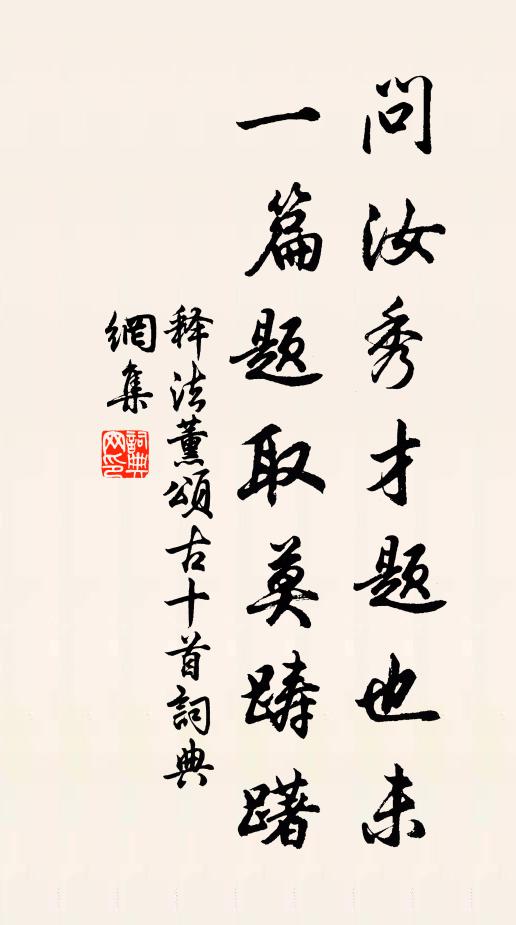 问汝秀才题也未
一篇题取莫踌躇
释法薰頌古十首詞典
網集
詞典网印